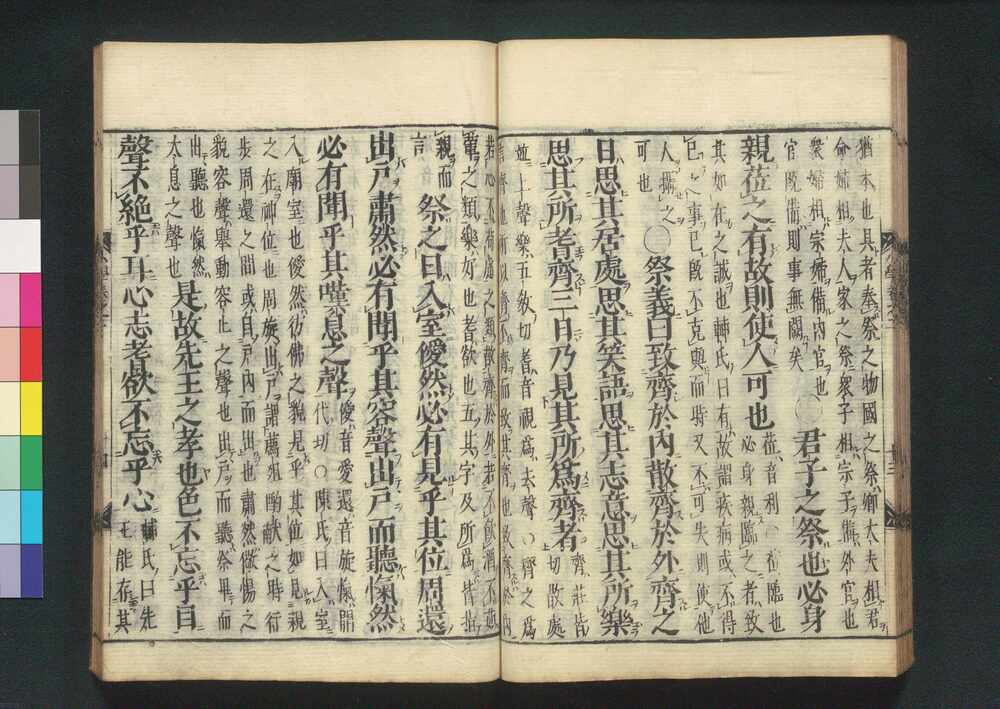 猶本也具者奉祭之物國之祭卿大夫相君
命婦相夫人家之祭衆子相宗子備外官也
衆婦相宗婦備內官也
官既備則事無闕矣
君子之祭也必身
親莅之有故則使人可也
莅音利○莅臨也
必身親臨之者致
其如在之誠也輔氏曰有故謂疾病或不得
已之事已既不克與而時又不可失則使他
人攝之
可也
○祭義曰致齊於內散齊於外齊之
日思其居處思其笑語思其志意思其所樂
思其所耆齊三日乃見其所爲齊者
齊莊皆
切散處
並上聲樂五敎切耆音視爲去聲○齊之爲
若心不苟慮之類散齊於外若不飲酒不茹
葷之類樂好也耆欲也五其字及所爲皆指
親而
言
祭之日入室僾然必有見乎其位周還
出戶肅然必有聞乎其容聲出戶而聽愾然
必有聞乎其嘆息之聲
僾音愛還音旋愾開
代切○陳氏曰入室
入廟室也僾然彷佛之貌見乎其位如見親
之在神位也周旋出戶謂薦俎酌獻之時行
步周還之間或自戶內而出也肅然儆惕之
貌容聲舉動容止之聲也出戶而聽祭畢而
出聽也愾然
太息之聲也
是故先王之孝也色不忘乎目
聲不絕乎耳心志耆欲不忘乎心
輔氏曰先
王能存其